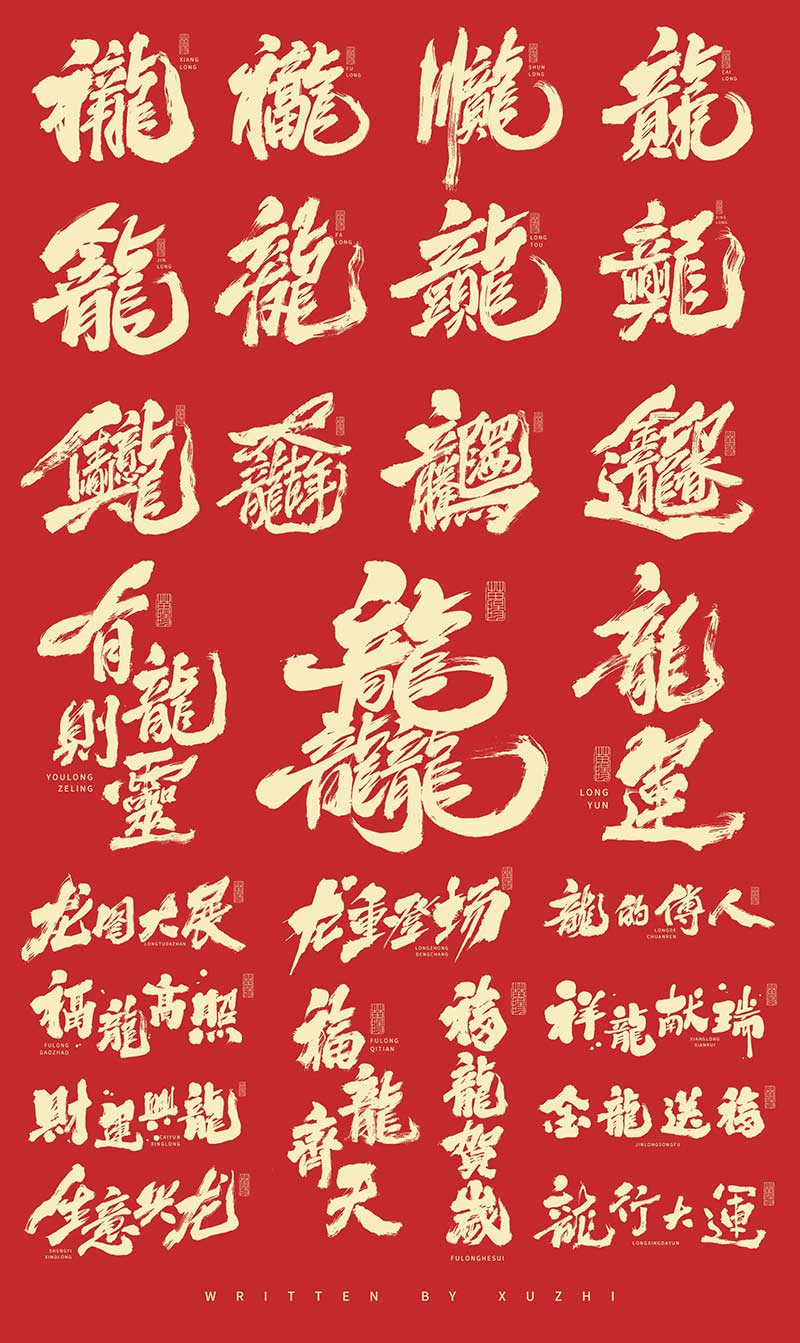 XIANG
LONG
FU
LONG
SHUN
LONG
CAI
LONG
JIN
LONG
FA
LONG
LONG
TOU
XING
LONG
有龍則靈
YOULONG
ZELING
龍龍龍
龍運
LONG
YUN
龙图大展
LONGTUDAZHAN
龙重登场
LONGZHONG
DENGCHANG
龍的傳人
LONGDE
CHUANREN
福龍高照
FULONG
GAOZHAO
福龍齊天
FULONG
QITIAN
福龍賀歲
FULONGHESUI
祥龍献瑞
XIANGLONG
XIANRUI
財運興龍
CAIYUN
XINGLONG
金龍送福
JINLONGSONGFU
生意兴龙
SHENGYI
XINGLONG
龍行大運
LONGXINGDAYUN
WRITTEN BY XUZHI